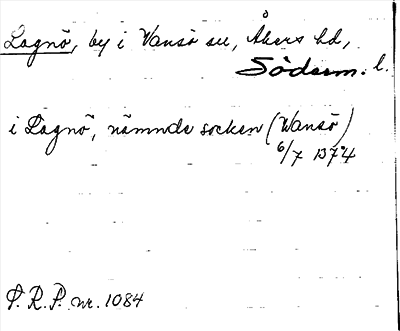 Lagnö, by i Vansö sn, Åkers hd,
Söderm. l.
i Lagnö, nämnda socken (Wansö)
6/7 1374
P. R. P. nr. 1084